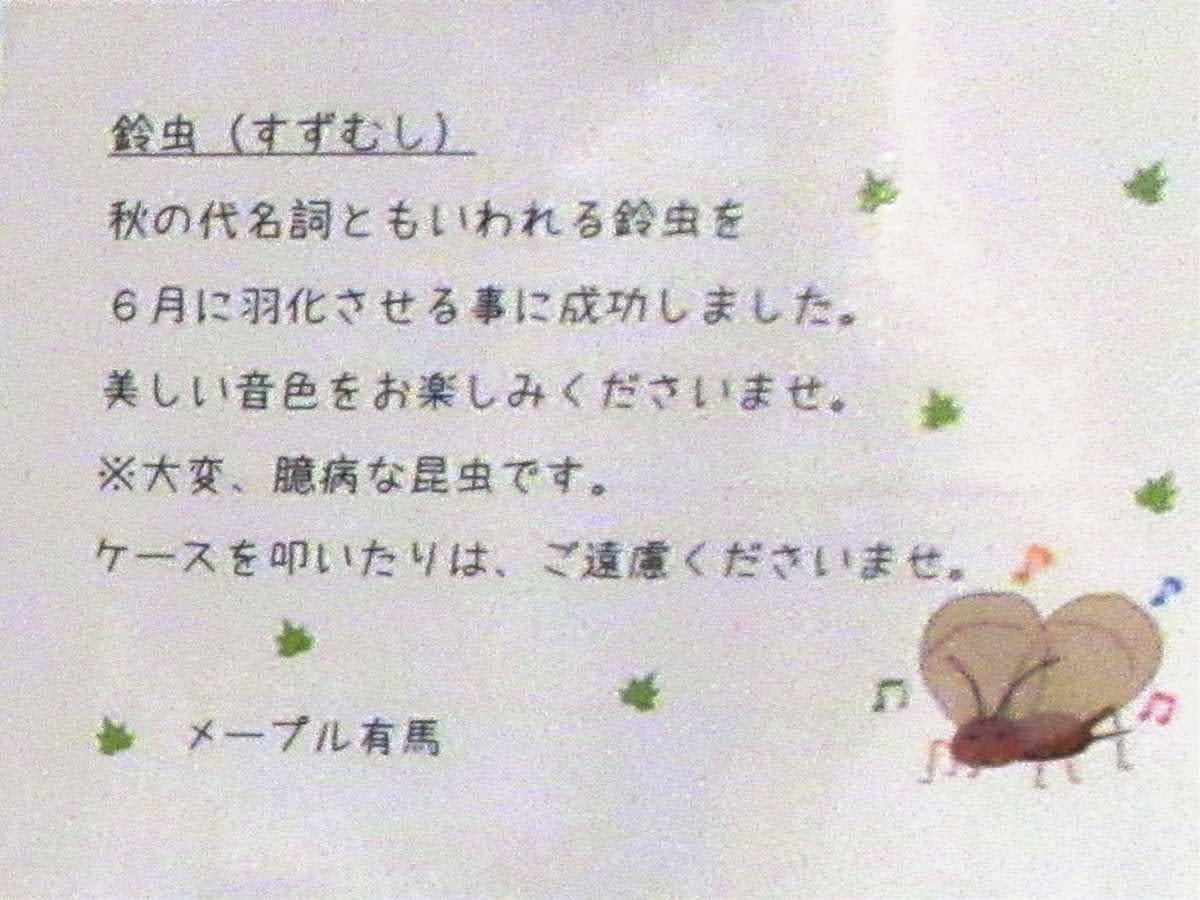 鈴虫（すずむし）
秋の代名詞ともいわれる鈴虫を
６月に羽化させる事に成功しました。
美しい音色をお楽しみくださいませ。
※大変、臆病な昆虫です。
ケースを叩いたりは、ご遠慮くださいませ。
メープル有馬